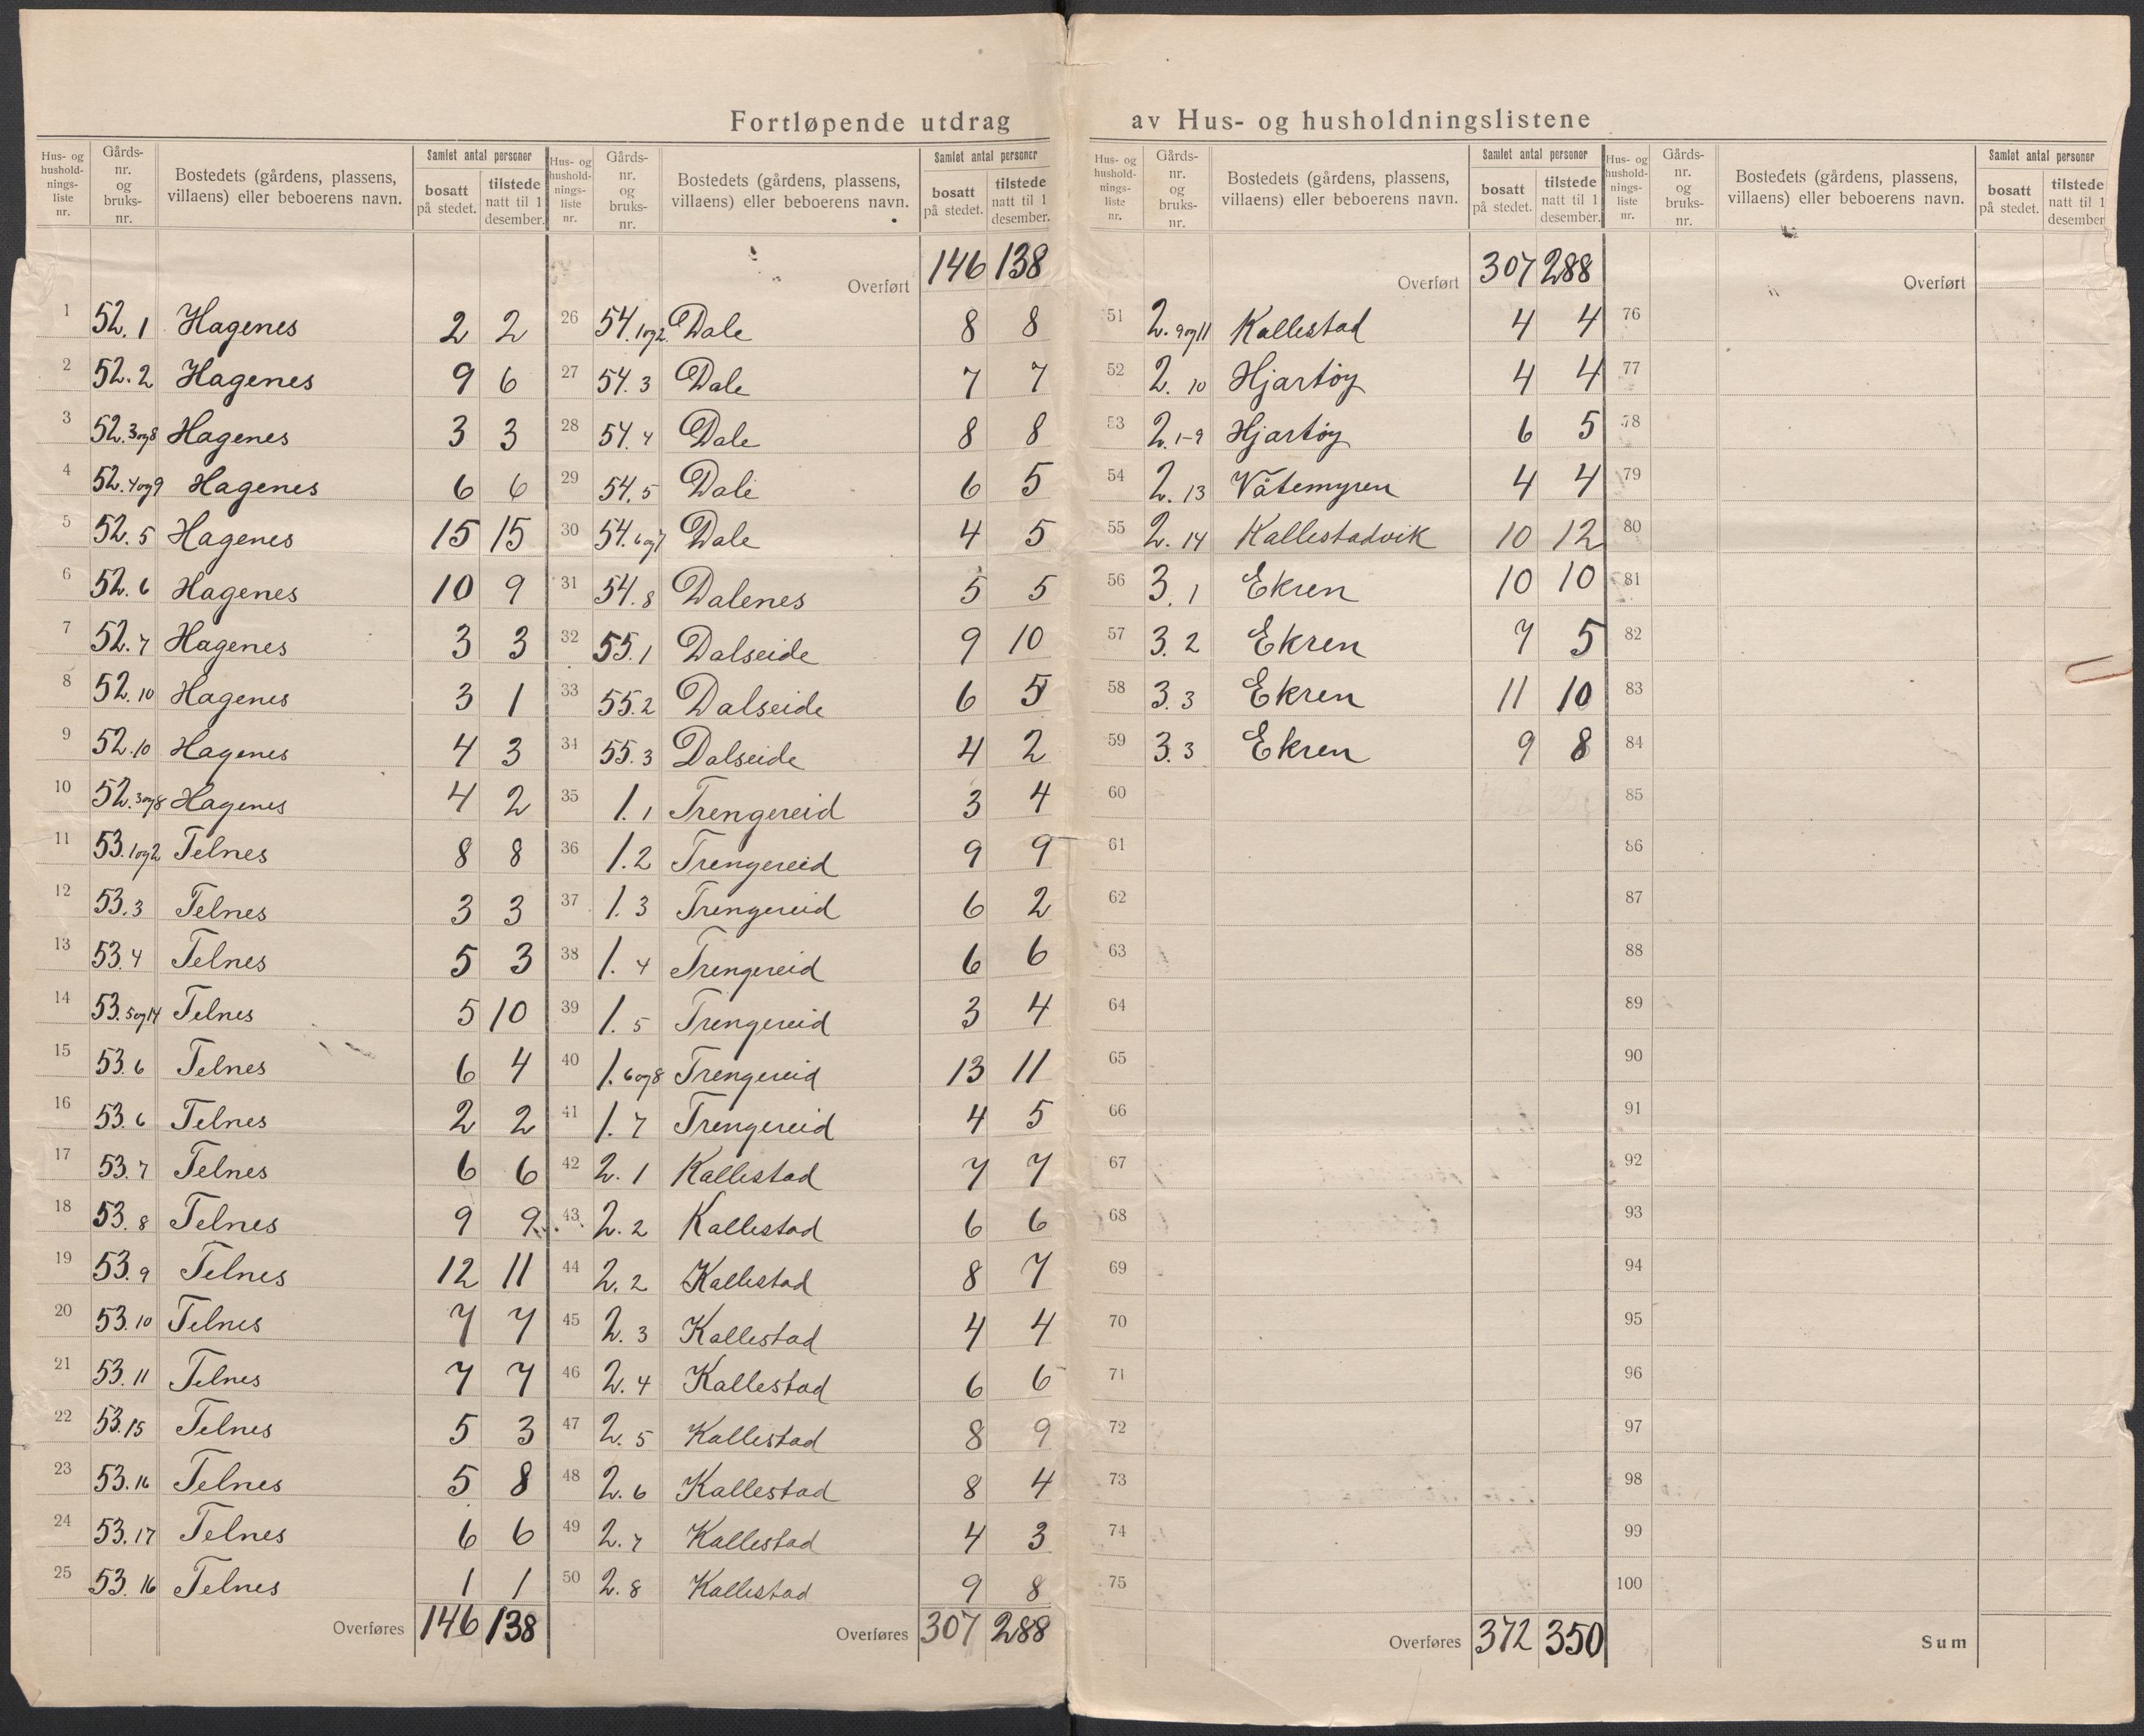 Fortløpende utdrag av Hus- og husholdningslistene
Hus- og hushold-nings-liste nr. | Gårds-nr. og bruks-nr. | Bostedets (gårdens, plassens, villaens) eller beboerens navn. | Samlet antal personer | bosatt på stedet. | tilstede natt til 1 desember.
1 52.1 Hagenes 2 2
2 52.2 Hagenes 9 6
3 52.3og8 Hagenes 3 3
4 52.4og9 Hagenes 6 6
5 52.5 Hagenes 15 15
6 52.6 Hagenes 10 9
7 52.7 Hagenes 3 3
8 52.10 Hagenes 3 1
9 52.10 Hagenes 4 3
10 52.3og8 Hagenes 4 2
11 53.1og2 Telnes 8 8
12 53.3 Telnes 3 3
13 53.4 Telnes 5 3
14 53.5og14 Telnes 5 10
15 53.6 Telnes 6 4
16 53.6 Telnes 2 2
17 53.7 Telnes 6 6
18 53.8 Telnes 9 9
19 53.9 Telnes 12 11
20 53.10 Telnes 7 7
21 53.11 Telnes 7 7
22 53.15 Telnes 5 3
23 53.16 Telnes 5 8
24 53.17 Telnes 6 6
25 53.16 Telnes 1 1
Overføres 146 138
Hus- og hushold-nings-liste nr. | Gårds-nr. og bruks-nr. | Bostedets (gårdens, plassens, villaens) eller beboerens navn. | Samlet antal personer | bosatt på stedet. | tilstede natt til 1 desember.
Overført 146 138
26 54.1og2 Dale 8 8
27 54.3 Dale 7 7
28 54.4 Dale 8 8
29 54.5 Dale 6 5
30 54.6og7 Dale 4 5
31 54.8 Dalenes 5 5
32 55.1 Dalseide 9 10
33 55.2 Dalseide 6 5
34 55.3 Dalseide 4 2
35 1.1 Trengereid 3 4
36 1.2 Trengereid 9 9
37 1.3 Trengereid 6 2
38 1.4 Trengereid 6 6
39 1.5 Trengereid 3 4
40 1.6og8 Trengereid 13 11
41 1.7 Trengereid 4 5
42 2.1 Kallestad 7 7
43 2.2 Kallestad 6 6
44 2.2 Kallestad 8 7
45 2.3 Kallestad 4 4
46 2.4 Kallestad 6 6
47 2.5 Kallestad 8 9
48 2.6 Kallestad 8 4
49 2.7 Kallestad 4 3
50 2.8 Kallestad 9 8
Overføres 307 288
Hus- og hushold-nings-liste nr. | Gårds-nr. og bruks-nr. | Bostedets (gårdens, plassens, villaens) eller beboerens navn. | Samlet antal personer | bosatt på stedet. | tilstede natt til 1 desember.
Overført 307 288
51 2.9og11 Kallestad 4 4
52 2.10 Hjartöy 4 4
53 2.1-9 Hjartöy 6 5
54 2.13 Våtemyren 4 4
55 2.14 Kallestadvik 10 12
56 3.1 Ekren 10 10
57 3.2 Ekren 7 5
58 3.3 Ekren 11 10
59 3.3 Ekren 9 8
60
61
62
63
64
65
66
67
68
69
70
71
72
73
74
75
Overføres 372 350
Hus- og hushold-nings-liste nr. | Gårds-nr. og bruks-nr. | Bostedets (gårdens, plassens, villaens) eller beboerens navn. | Samlet antal personer | bosatt på stedet. | tilstede natt til 1 desember
Overført
76
77
78
79
80
81
82
83
84
85
86
87
88
89
90
91
92
93
94
95
96
97
98
99
100
Sum